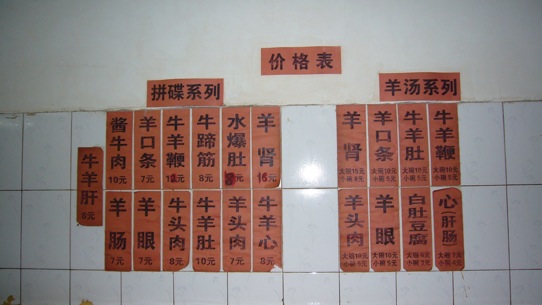 价格表
拼碟系列
牛羊肝
6元
酱牛肉
10元
羊口条
7元
牛羊鞭
12元
牛蹄筋
8元
水爆肚
羊肾
16元
羊肠
7元
羊眼
7元
牛头肉
8元
牛羊肚
10元
羊头肉
7元
牛羊心
8元
羊汤系列
羊肾
大碗15元
小碗8元
羊口条
大碗10元
小碗5元
牛羊肚
大碗10元
小碗5元
牛羊鞭
大碗10元
小碗5元
羊头肉
大碗10元
羊眼
大碗10元
小碗5元
白肚豆腐
心(肝肠